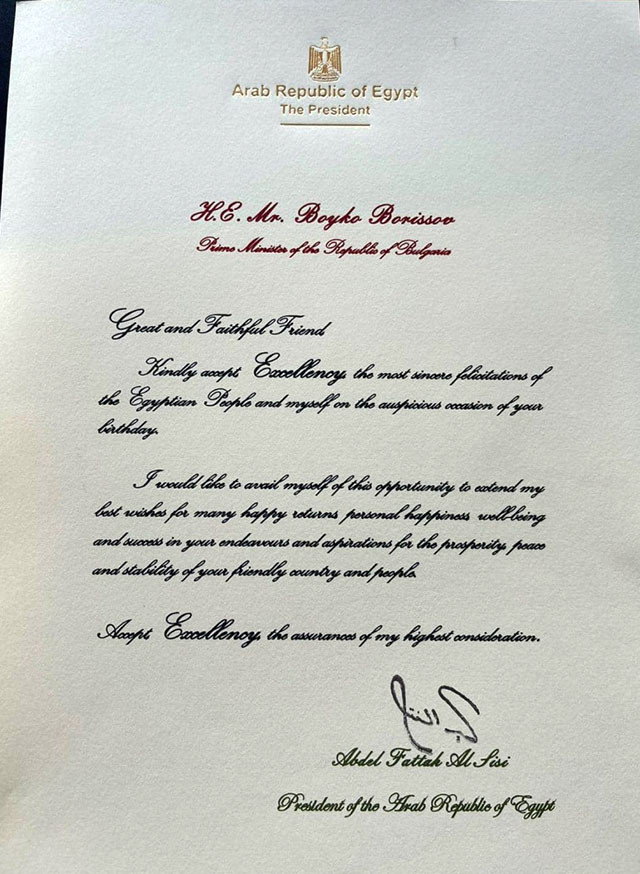 Arab Republic of Egypt
The President
H.E. Mr. Boyko Borissov
Prime Minister of the Republic of Bulgaria
Great and Faithful Friend
Kindly accept, Excellency, the most sincere felicitations of
the Egyptian People and myself on the auspicious occasion of your
birthday.
I would like to avail myself of this opportunity to extend my
best wishes for many happy returns, personal happiness, well-being
and success in your endeavours and aspirations for the prosperity, peace
and stability of your friendly country and people.
Accept, Excellency, the assurances of my highest consideration.
Abdel Fattah Al Sisi
President of the Arab Republic of Egypt